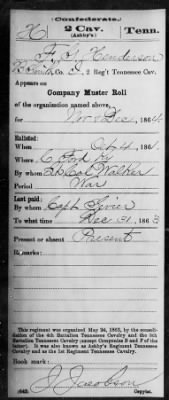 Confederate.
H 2 Cav. Tenn.
(Ashby's)
Henderson
Co. 2 Reg't Tennessee Cav.
Appears on
Company Muster Roll
of the organization named above,
for Nov & Dec, 1864
Enlisted:
When Oct 4, 186 .
Where C. Ford Ky
By whom Lt Col Walker
Period War
Last paid:
By whom Capt
To what time Dec 31, 1863
Present or absent Present
Remarks:
This regiment was organized May 24, 1862, by the consolida-
tion of the 4th Battalion Tennessee Cavalry and the 5th
Battalion Tennessee Cavalry (except Companies
It was also known as Ashby's Regiment Tennessee
Cavalry and as the 1st Regiment Tennessee Cavalry.
Book mark:
J. Jacobson
(642) Copyist.